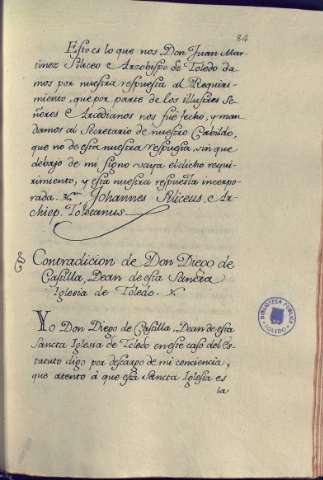 84
Esto es lo que nos Don Juan Mar-
tinez Siliceo e Arzobispo de Toledo da-
mos por nuestra respuesta al Requiri-
miento, que por parte de los illustres Se-
ñores e Arcedianos nos fue fecho, y man-
damos al Secretario de nuestro Cabildo,
que no dè esta nuestra respuesta sin que
debajo de mi signo vaya el dicho requi-
rimiento, y esta nuestra respuesta incorpo-
rada. Johannes Siliceus e Ar-
chiep. Toletanus
Contradicion de Don Diego de
Castilla, Dean de esta Sancta
Iglesia de Toledo.
Yo Don Diego de Castilla, Dean de esta
Sancta Iglesia de Toledo en este caso del Es-
tatuto digo por descargo de mi conciencia,
que atento á que esta Sancta Iglesia es
la
BIBLIOTECA PÚBLICA
TOLEDO